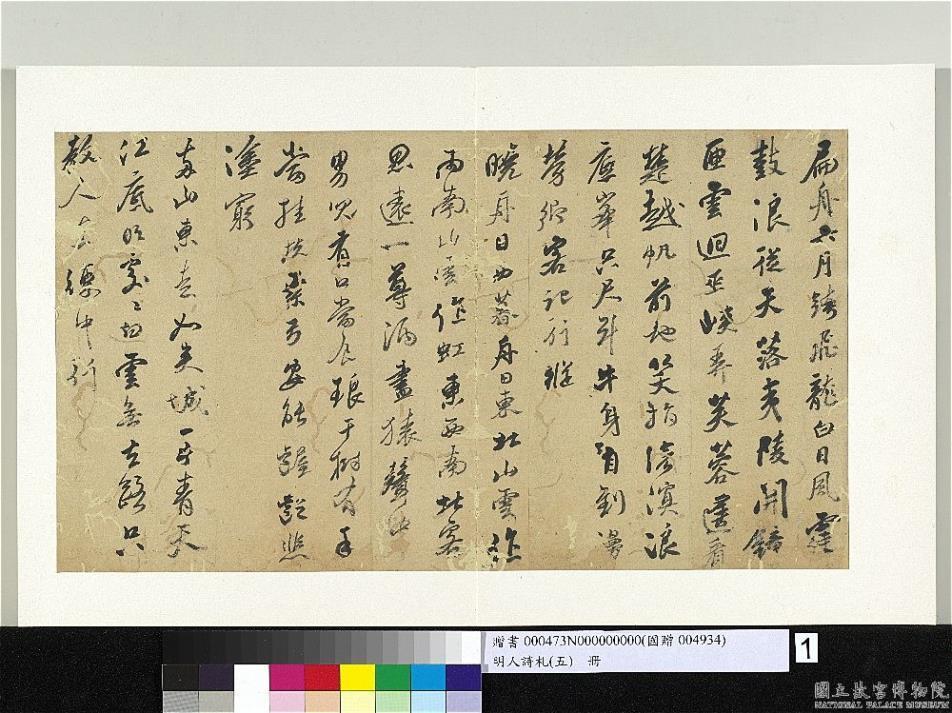 扁舟六月鱗飛龍白日風霆
鼓浪從天落夷陵開鏡
匣雲迴巫峽弄芙蓉蓬看
楚越帆前地笑指滄溟浪
座峯只尺斗牛身有劍漫
勞海客記行蹤
曉舟日西暮舟日東北山雲作
雨南山雲作虹東西南北客
思遠一尊酒盡猿聲
男兒有口當食琅玕樹有手
當挂扶桑弓安能齷齪悲
塗窮
山東去如失城一片青天
江底明處處白雲無去路只
教人在中行
贈書 000473N000000000(國贈 004934)
明人詩札(五) 冊
1
國立故宮博物院
NATIONAL PALACE MUSEUM